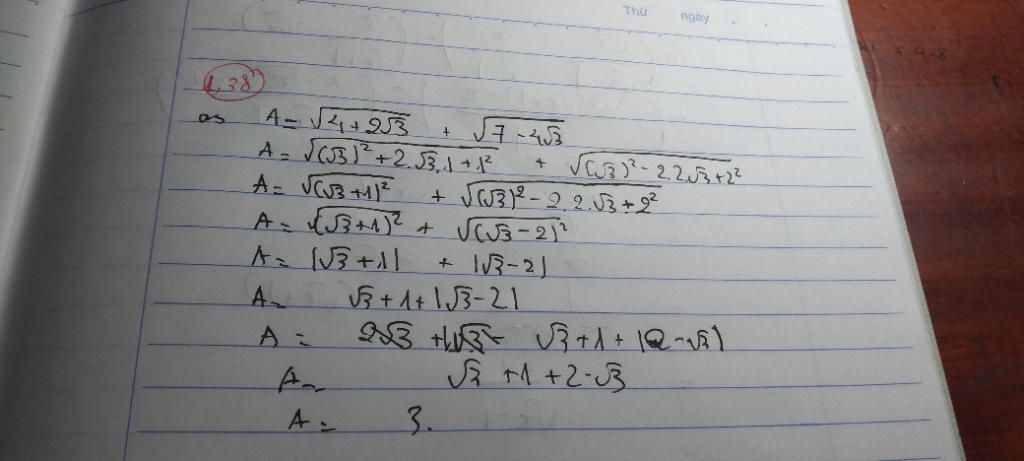 Thứ ngày
1.38
a) A = √(4 + 2√3) + √(7 - 4√3)
A = √((√3)² + 2.√3.1 + 1²) + √((√3)² - 2.2√3 + 2²)
A = √((√3 + 1)²) + √((√3)² - 2.2.√3 + 2²)
A = √((√3 + 1)²) + √((√3 - 2)²)
A = |√3 + 1| + |√3 - 2|
A = √3 + 1 + |√3 - 2|
A = √3 + 1 + |2 - √3|
A = √3 + 1 + 2 - √3
A = 3.